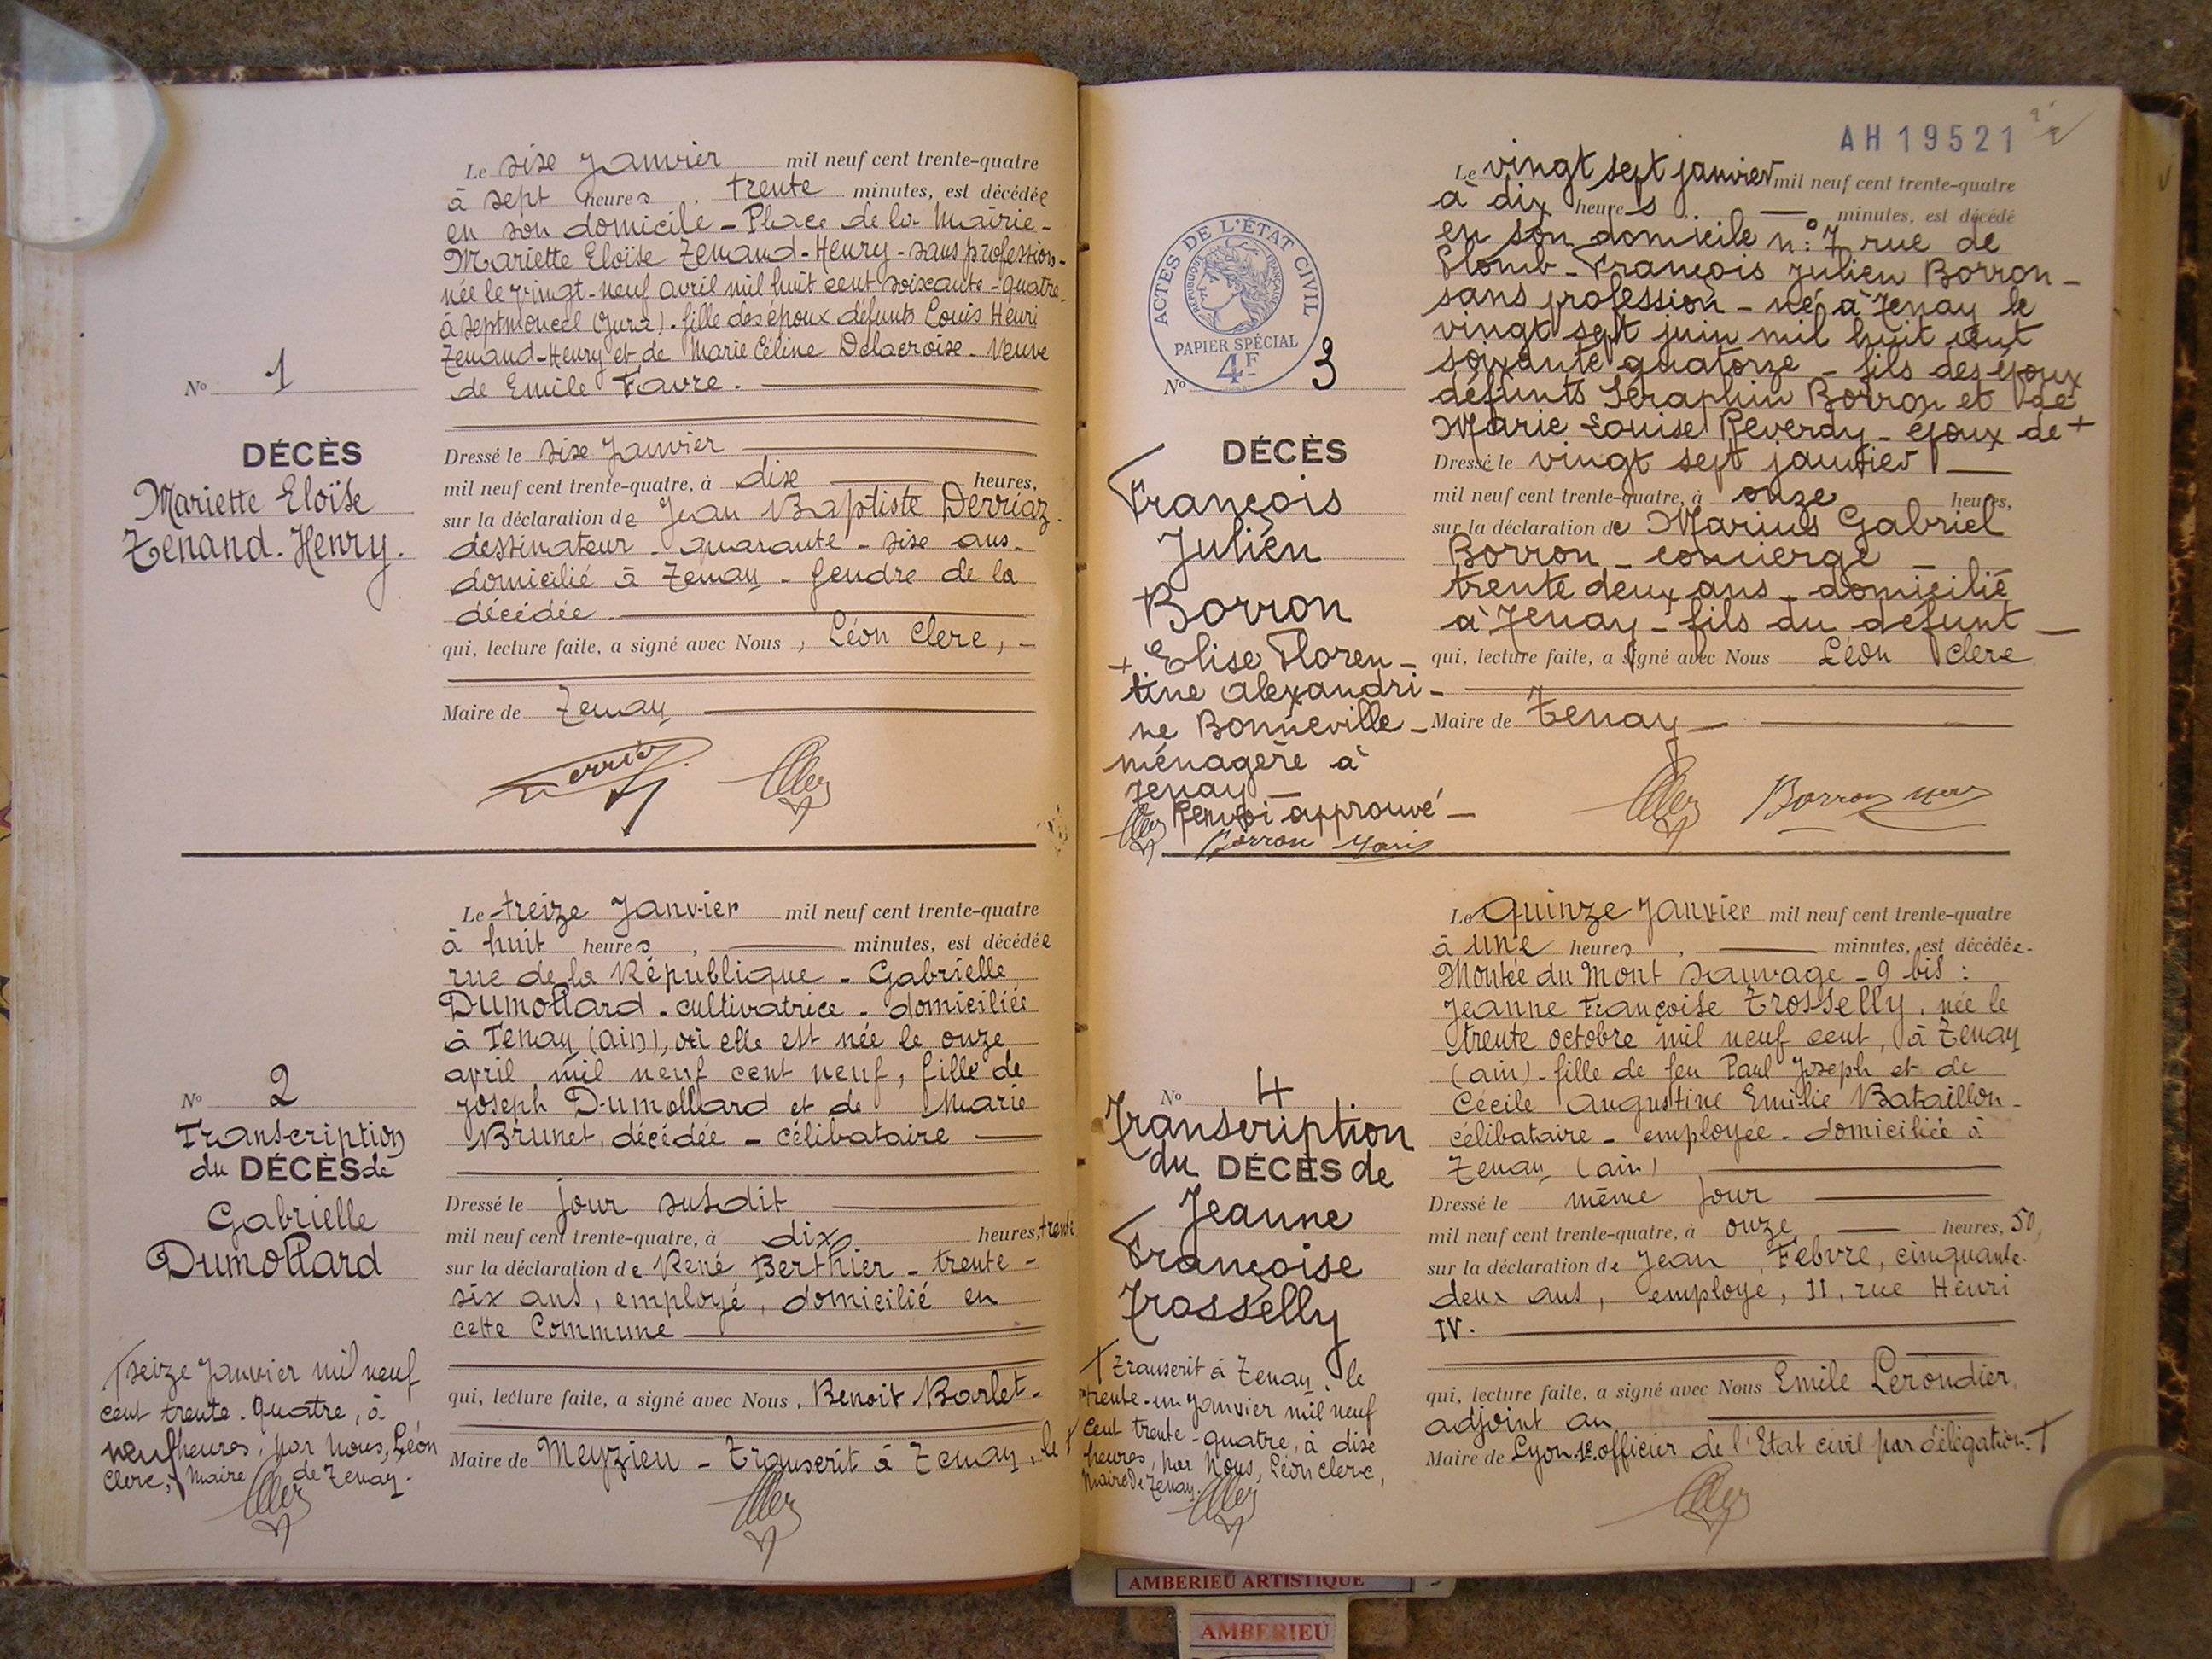 Le sixe Janvier mil neuf cent trente-quatre
à sept heures, trente minutes, est décédée
en son domicile - Place de la Mairie -
Mariette Eloïse Tenand-Henry - sans profession -
née le vingt-neuf avril mil huit cent soixante-quatre,
à Septmoncel (Jura) - fille des époux défunts Louis Henri
Tenand-Henry et de Marie Céline Delacroise - Veuve
de Emile Favre.
N° 1
DÉCÈS
Mariette Eloïse
Tenand-Henry.
Dressé le sixe Janvier
mil neuf cent trente-quatre, à dixe heures,
sur la déclaration de Jean Baptiste Derriaz
dessinateur - quarante-sixe ans -
domicilié à Tenay - Gendre de la
décédée.
qui, lecture faite, a signé avec Nous, Léon Clerc, -
Maire de Tenay
Le treize Janvier mil neuf cent trente-quatre
à huit heures, minutes, est décédée
rue de la République - Gabrielle
Dumollard - cultivatrice - domiciliée
à Tenay (ain), où elle est née le onze
avril mil neuf cent neuf, fille de
Joseph Dumollard et de Marie
Brunet, décédée - célibataire
N° 2
Transcription
du DÉCÈS de
Gabrielle
Dumollard
Dressé le jour susdit
mil neuf cent trente-quatre, à dix heures, trente
sur la déclaration de René Berthier - trente-
six ans, employé, domicilié en
cette Commune
qui, lecture faite, a signé avec Nous, Benoit Barlet -
Maire de Meyzieu - Transcrit à Tenay, le †
† seize Janvier mil neuf
cent trente-quatre, à
neuf heures, par Nous, Léon
Clerc, Maire de Tenay.
AH 19521
Le vingt sept janvier mil neuf cent trente-quatre
à dix heures minutes, est décédé
en son domicile n° 7 rue de
Plomb - François Julien Borron -
sans profession - né à Tenay le
vingt sept juin mil huit cent
soixante quatorze - fils des époux
défunts Séraphin Borron et de
Marie Louise Reverdy - époux de +
ACTES DE L'ÉTAT CIVIL
RÉPUBLIQUE FRANÇAISE
PAPIER SPÉCIAL
4F
N° 3
DÉCÈS
François
Julien
Borron
+ Elise Floren-
tine alexandri-
ne Bonneville -
ménagère à
Tenay -
Renvoi approuvé -
Borron
Dressé le vingt sept janvier
mil neuf cent trente-quatre, à onze heures,
sur la déclaration de Marius Gabriel
Borron - concierge -
trente deux ans - domicilié
à Tenay - fils du défunt -
qui, lecture faite, a signé avec Nous Léon Clerc
Maire de Tenay -
Borron
Le Quinze Janvier mil neuf cent trente-quatre
à une heures, minutes, est décédée -
Montée du Mont Sauvage - 9 bis :
Jeanne Françoise Trosselly, née le
trente octobre mil neuf cent, à Tenay
(ain) - fille de feu Paul Joseph et de
Cécile Augustine Emilie Bataillon -
célibataire - employée - domiciliée à
Tenay (ain)
N° 4
Transcription
du DÉCÈS de
Jeanne
Françoise
Trosselly
Dressé le même jour
mil neuf cent trente-quatre, à onze heures, 50,
sur la déclaration de Jean Febvre, cinquante-
deux ans, employé, 11, rue Henri
IV.
qui, lecture faite, a signé avec Nous Emile Lerondier,
adjoint au
Maire de Lyon officier de l'Etat civil par délégation. †
† Transcrit à Tenay, le
trente-un Janvier mil neuf
cent trente-quatre, à dixe
heures, par Nous, Léon Clerc,
Maire de Tenay.
AMBERIEU ARTISTIQUE
AMBERIEU